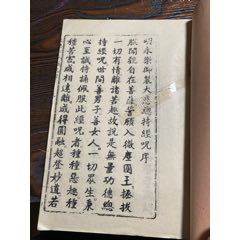 明永樂御製大悲總持經呪序
朕聞觀自在菩薩誓願入微塵國土拯拔
一切有情離諸苦趣故說是無量功德總
持經呪世間善男子善女人一切眾生秉
心至誠持誦佩服此經呪者種種惡趣種
種苦害咸相遠離咸得圓融超登妙道若